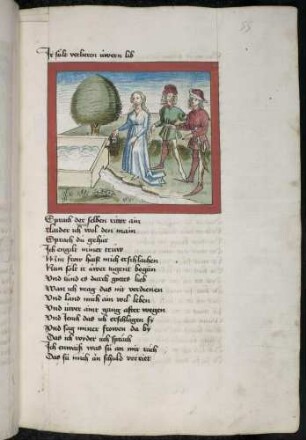 Ir súle verlieren úwern lib
Sprach der selben ritter ain
Ander ich wol den main
Sprach du gehit
Ich engilt miner trúw
Min frow haist mich erschlachen
Nun solt ir úwer tugent began
Vnd tünd es durch gottes lieb
Wan ich mag das nit verdienen
Vnd land mich ain wil leben
Vnd úwer ainr gang after wegen
Vnd iench das ich erschlagen sy
Vnd sag miner frowen da by
Das ich vorder ich sprach
Ich enwaiß was sú an mir rach
Das sú mich ån schuld verriet